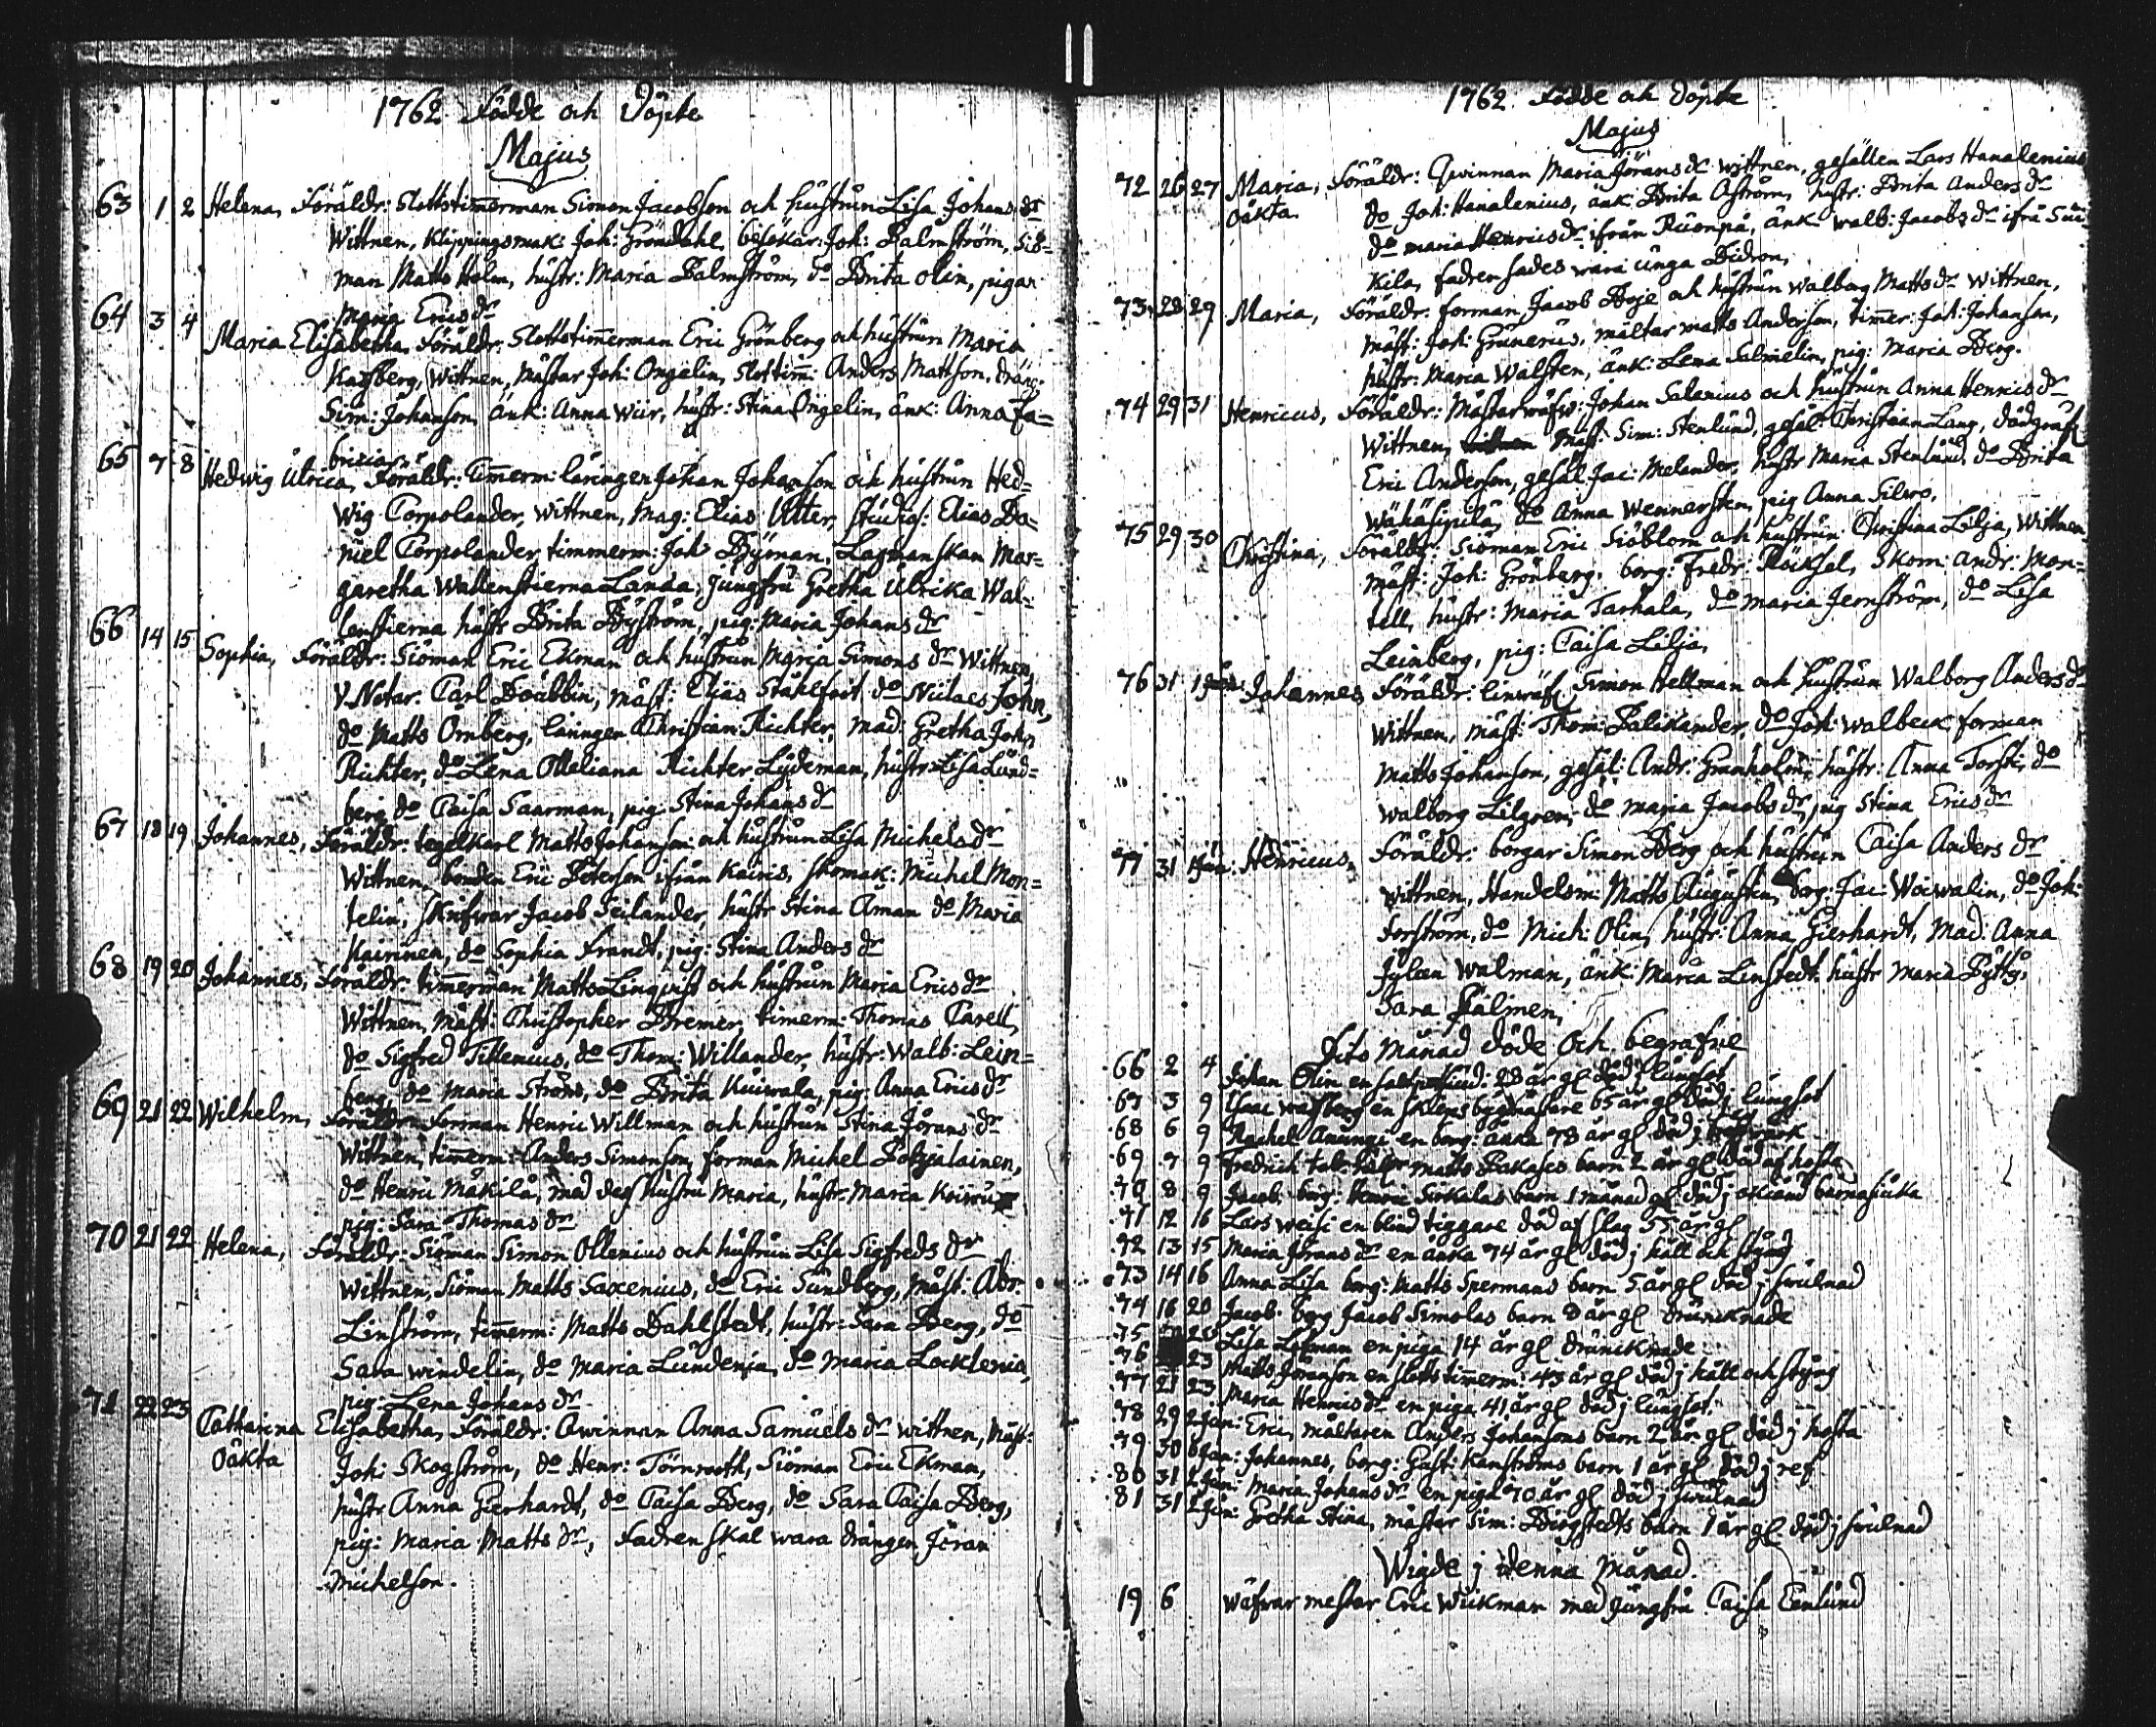 1762 Födde och Döpte
Majus
63 1 2 Helena, Föräldr: Slottstimmerman Simon Jacobson och hustrun Lisa Johans dr
Wittnen, Klippingsmak: Joh: Gröndahl, besökar: Joh: Palmström, Siö=
man Matts Holm, hustr: Maria Palmström, do Brita Olin, pigan
Maria Erics dr
64 3 4 Maria Elisabetha, Föräldr: Slottstimmerman Eric Grönberg och hustrun Maria
Kagberg, Wittnen, Mästar Joh: Ongelin, Slottstim: Anders Mattson, dräng:
Sim: Johanson, änk: Anna Wiir, hustr: Stina Ongelin, änk: Anna Fa=
briciar
65 7 8 Hedwig Ulrica, Föräldr: Timmerm: läringen Johan Johanson och hustrun Hed=
wig Corpolander, Wittnen, Mag: Elias Utter, Studios: Elias Da=
niel Corpolander, timmerm: Joh Byman, Lagmanskan Mar=
garetha Wallenstierna Landa, jungfru Gretha Ulrika Wal=
lenstierna hustr Brita Byström, pig: Maria Johans dr
66 14 15 Sophia, Föräldr: Siöman Eric Ekman och hustrun Maria Simons dr Wittnen,
V. Notar. Carl Doubbin, mäst: Elias Stählfoot, do Niclaes John,
do Matts Ornberg, läringen Christian Richter, Mad: Gretha John
Richter, do Lena Otteliana Richter Lydeman, hustr: Lisa Lund=
berg do Caisa Saarman, pig Stina Johans dr
67 18 19 Johannes, Föräldr: tegelkarl Matts Johanson och hustrun Lisa Michels dr
Wittnen, bonden Eric Peterson ifrån Kairis, skomak: Michel Mon=
telin, Knifwar Jacob Feilander, hustr Stina Aman do Maria
Kairinen, do Sophia Frandt, pig: Stina Anders dr
68 19 20 Johannes, Föräldr. timmerman Matts Linqvist och hustrun Maria Erics dr
Wittnen, Mäst: Christopher Bremer, timerm: Thomas Carell,
do Sigfred Tillenius, do Thom: Willander, hustr: Walb: Lein=
berg, do Maria Ström, do Brita Kuiwala, pig: Anna Erics dr
69 21 22 Wilhelm, Föräldr: Forman Henric Willman och hustrun Stina Jörans dr
Wittnen, timmerm: Anders Simonson, forman Michel Pohjalainen,
do Henric Mäkilä, med dess hustru Maria, hustr Maria
pig: Sara Thomas dr
70 21 22 Helena, Föräldr: Siöman Simon Ollenius och hustrun Lisa Sigfreds dr
Wittnen, Siöman Matts Saxenius, do Eric Sundberg, mäst. Abr.
Linström, timmerm: Matts Dahlstedt, hustr: Sara Berg, do
Sara Windelin, do Maria Lundenia, do Maria Locklenia,
pig: Lena Johans dr
71 22 23 Catharina Elisabetha, Föräldr: Qwinnan Anna Samuels dr wittnen, mäst:
Oäkta Joh: Skogström, do Henr: Törnroth, Siöman Eric Ekman,
hustr Anna Gierhardt, do Caisa Berg, do Sara Caisa Berg,
pig: Maria Matts dr, Fadren skal wara drängen Jöran
Michelson.
1762 Födde och Döpte
Majus
72 26 27 Maria, Föräldr: Qwinnan Maria Jörans dr wittnen, gesällen Lars Hanalenius
oäkta. do Joh: Hanalenius, änk: Brita Oström, hustr: Brita Anders dr
do Maria Henrics dr ifrån Ruonpä, änk: Walb: Jacobs dr ifrå Sui
Kila, fadren sades wara unga Bidron,
73 28 29 Maria, Föräldr: forman Jacob Boje och hustrun Walborg Matts dr wittnen,
mäst: Joh: Grunerus, mältar Matts Anderson, timer: Joh: Johanson,
hustr: Maria Walsten, änk: Lena Salmelin, pig: Maria Berg.
74 29 31 Henricus, Föräldr: Mästar Johan Salenius och hustrun Anna Henrics dr
Wittnen, Mäst: Sim: Stenlund, gesäl: Christian Lang, dödgräf
Eric Anderson, gesäl Jac: Melander, hustr Maria Stenlund, do Brita
Wähäsipilä, do Anna Wennersten, pig Anna Silwo.
75 29 30 Christina, Föräldr: Siöman Eric Siöblom och hustrun Christina Lilja, Wittnen
Mäst: Joh: Grönberg, borg: Fredr: Röiksel, Skom: andr: Mon=
tell, hustr: Maria Tarhala, do Maria Jernström, do Lisa
Leinberg, pig: Caisa Lilja,
76 31 1 Jun: Johannes Föräldr: linwäf Simon Hellman och hustrun Walborg Anders dr
Wittnen, mäst: Thom: Palikander, do Joh: Walbeck, forman
Matts Johanson, gesäl: Andr: Granholm, hustr: Anna Torst, do
Walborg Lilgren, do Maria Jacobs dr, pig Stina Erics dr
77 31 1 Jun: Henricus, Föräldr: borgar Simon Berg och hustrun Caisa Anders dr
wittnen, Handelsm: Matts Augustin, borg: Jac: Woiwalin, do Joh:
Forström, do Mich: Olin, hustr: Anna Gierhardt, Mad: Anna
Walman, änk: Maria Linstedt, hustr Maria
Sara Palmen,
Dito Månad döde och begrafne
66 2 4 Johan Olin en 28 år gl död j lungsot
67 3 9 en Skepsbygmästare 65 år gl död j lungsot
68 6 9 Rachel en borg: änka 78 år gl död j
69 7 9 Fredrich Matts Pakases barn 2 år gl död af hosta
70 8 9 Jacob borg: Henric Sirkalas barn 1 månad gl död j okiänd barnasiuka
71 12 16 Lars weisi en blind tiggare död af slag 55 år gl
72 13 15 Maria Jörans dr en änka 74 år gl död j håll och styng
73 14 16 Anna Lisa borg: Matts Spermans barn 5 år gl död j swulnad
74 16 20 Jacob borg Jacob Simolas barn 8 år gl druncknade
75 20 Lisa en piga 14 år gl druncknade
76 23 Matts Jöranson en slottstimmerm: 43 år gl död j håll och styng
77 21 23 Maria Henrics dr en piga 41 år gl död j lungsot.
78 29 2 Jun: Eric, mältaren Anders Johansons barn 2 år gl död j hosta
79 30 6 Jun: Johannes, borg: Gust: Kanströms barn 1 år gl död j ref
80 31 2 Jun: Maria Johans dr en piga 70 år gl död j swulnad
81 31 2 Jun: Gretha Stina, mästar Sim: Bergstedts barn 1 år gl död j swulnad
Wigde j denna månad.
19 6 wäfwar mestar Eric Wiikman med Jungfru Caisa Eenlund